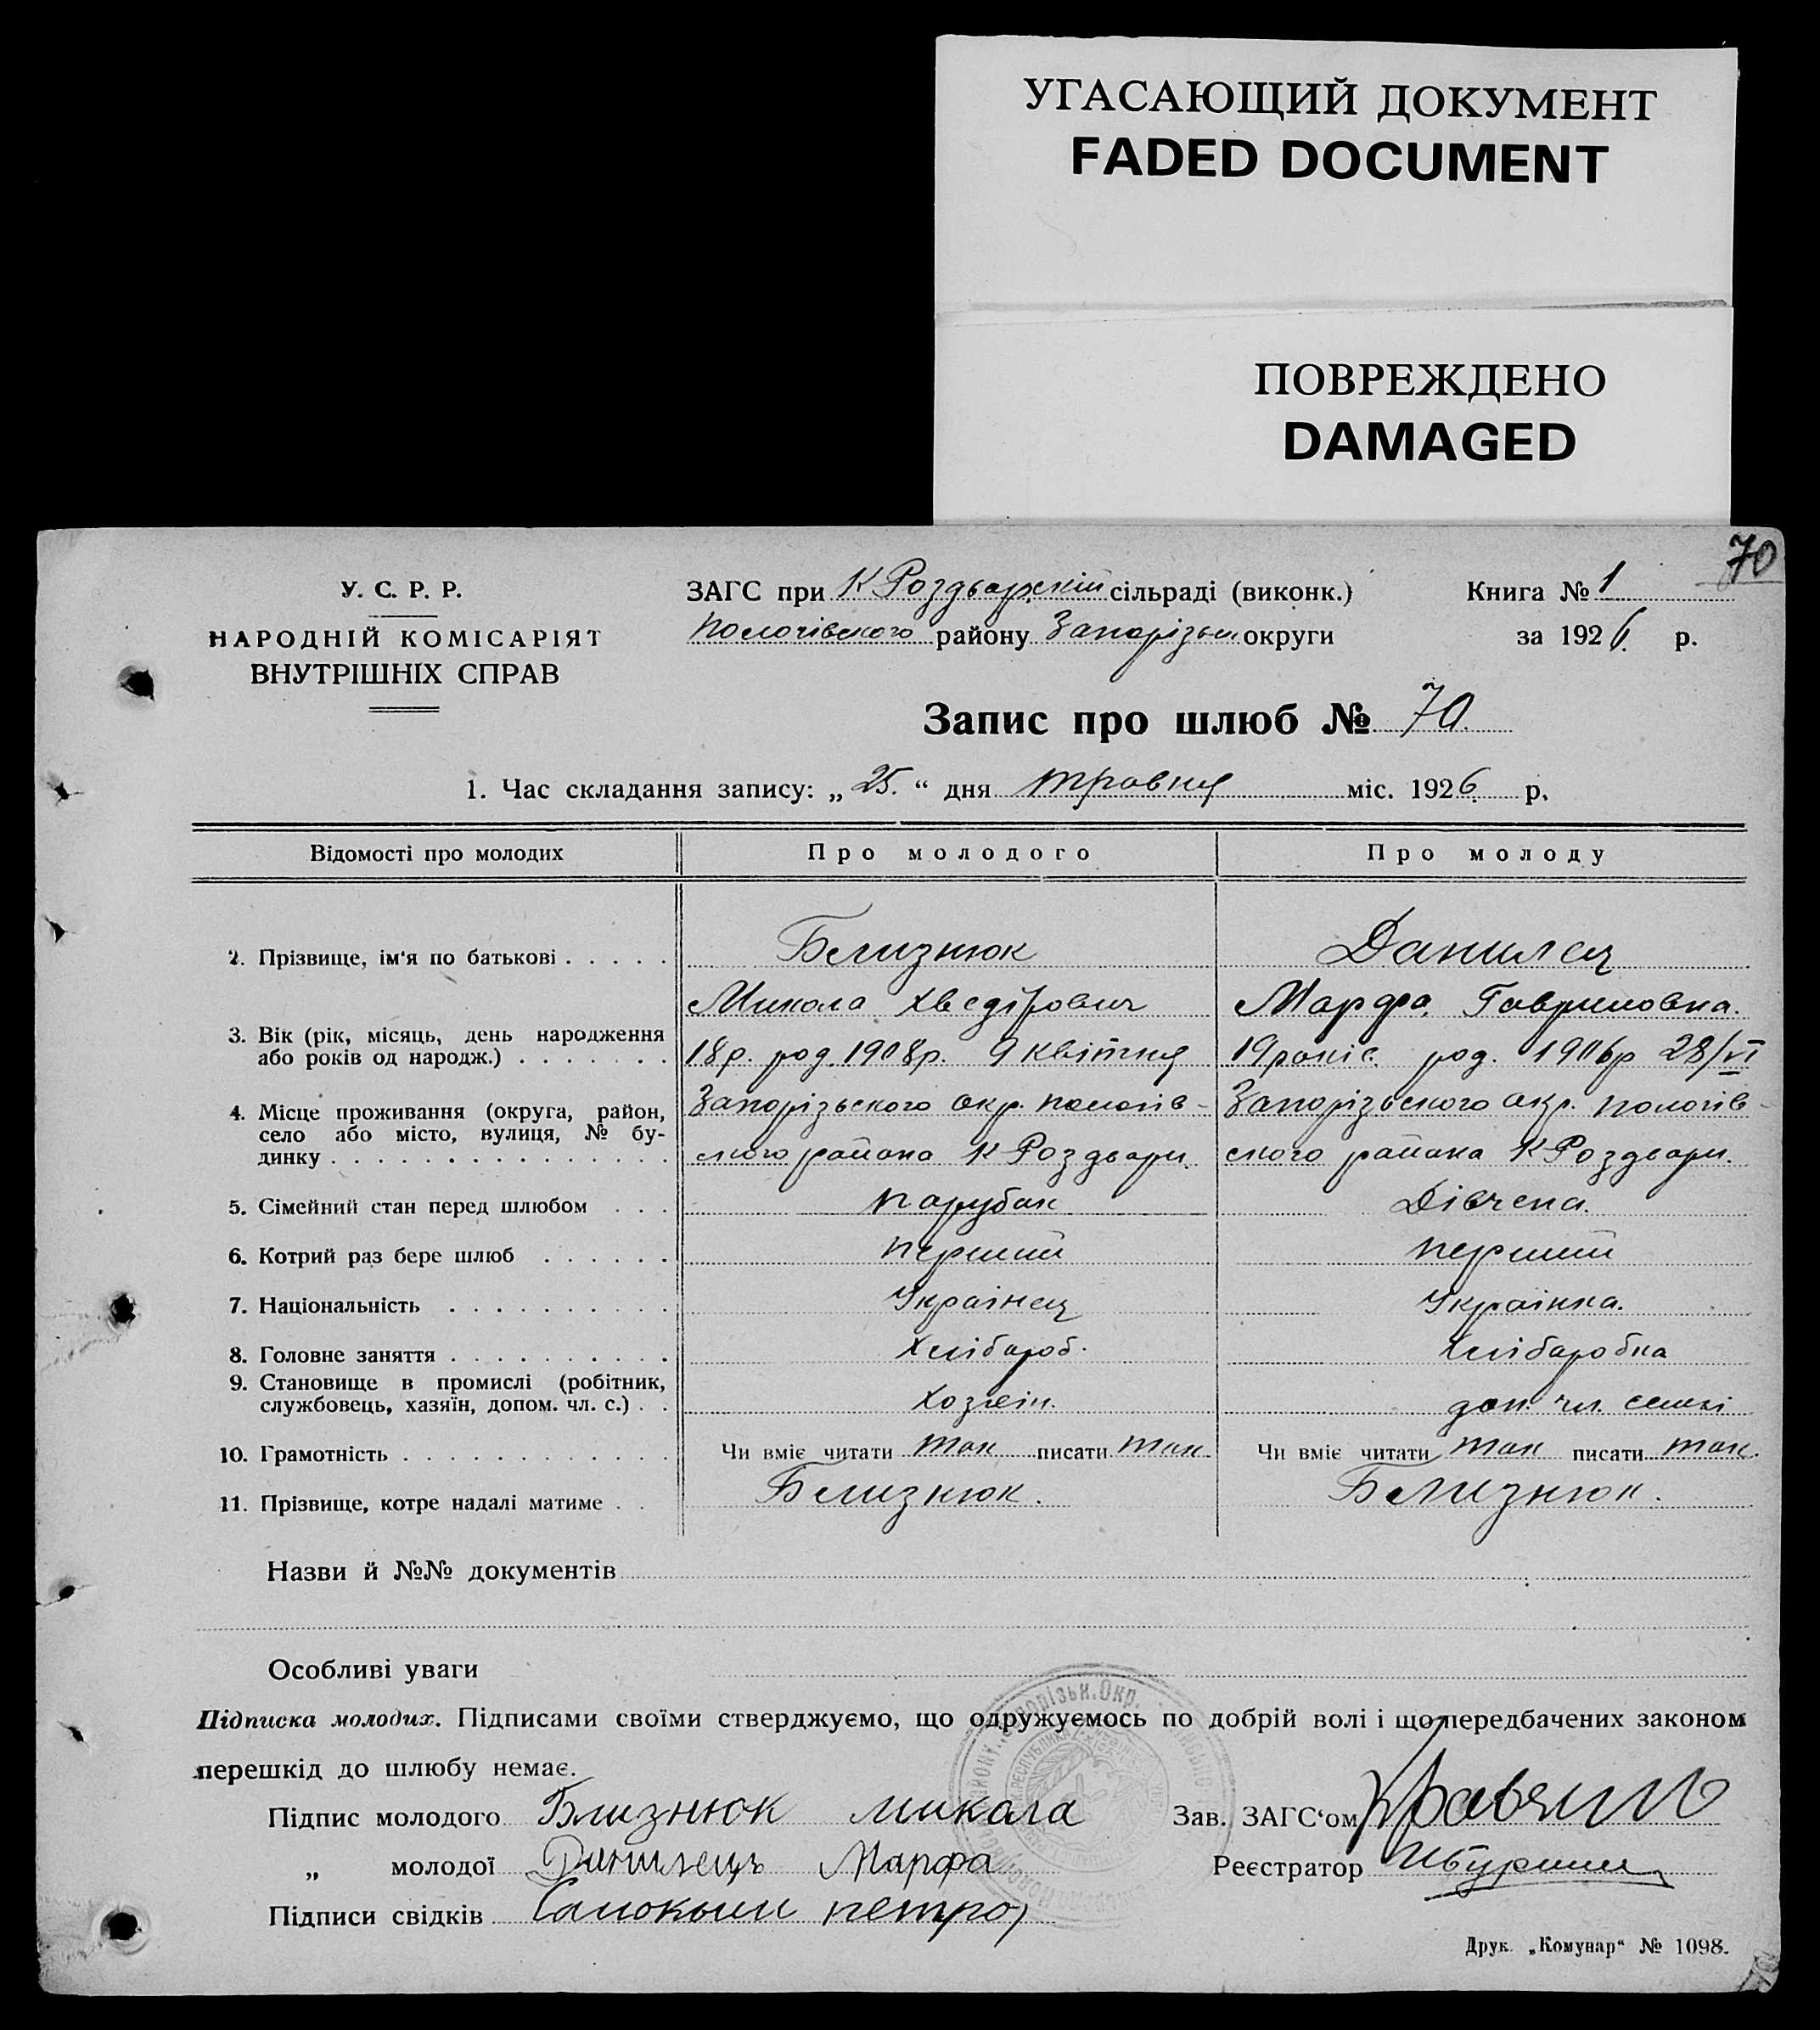 УГАСАЮЩИЙ ДОКУМЕНТ
FADED DOCUMENT
ПОВРЕЖДЕНО
DAMAGED
70
У. С. Р. Р.
НАРОДНІЙ КОМІСАРІЯТ
ВНУТРІШНІХ СПРАВ
ЗАГС при К Роздварскій сільраді (виконк.)
Пологівського району Запорізьк округи
Книга № 1
за 1926 р.
Запис про шлюб № 70.
1. Час складання запису: „ 25. “ дня травня міс. 1926 р.
Відомості про молодих Про молодого Про молоду
2. Прізвище, ім‘я по батькові . . . . . Близнюк Данилец
Микола Хведірович Марфа Гавриловна.
3. Вік (рік, місяць, день народження
або років од народж.) . . . . . . . 18р. род. 1908р. 9 квітня 19 років. род. 1906р 28/VI
4. Місце проживання (округа, район, Запорізського окр. пологів- Запорізського окр. пологів-
село або місто, вулиця, № бу-
динку . . . . . . . . . . . . . . . ського района К Роздвари. ського района К Роздвари.
5. Сімейний стан перед шлюбом . . . парубак Дівчена.
6. Котрий раз бере шлюб . . . . . . перший перший
7. Національність . . . . . . . . . . Украінец Украінка.
8. Головне заняття . . . . . . . . . . Хлібароб. Хлібаробка
9. Становище в промислі (робітник,
службовець, хазяїн, допом. чл. с.) . . Хозяін. доп. чл. семьі
10. Грамотність . . . . . . . . . . . . Чи вміє читати так писати так Чи вміє читати так писати так.
11. Прізвище, котре надалі матиме . . Близнюк. Близнюк.
Назви й №№ документів
Особливі уваги
Підписка молодих. Підписами своїми стверджуємо, що одружуємось по добрій волі і що передбачених законом
перешкід до шлюбу немає.
Підпис молодого Близнюк микала Зав. ЗАГС‘ом Кравченко
„ молодої Данилець Марфа Реєстратор
Підписи свідків петро
Друк. „Комунар“ № 1098.